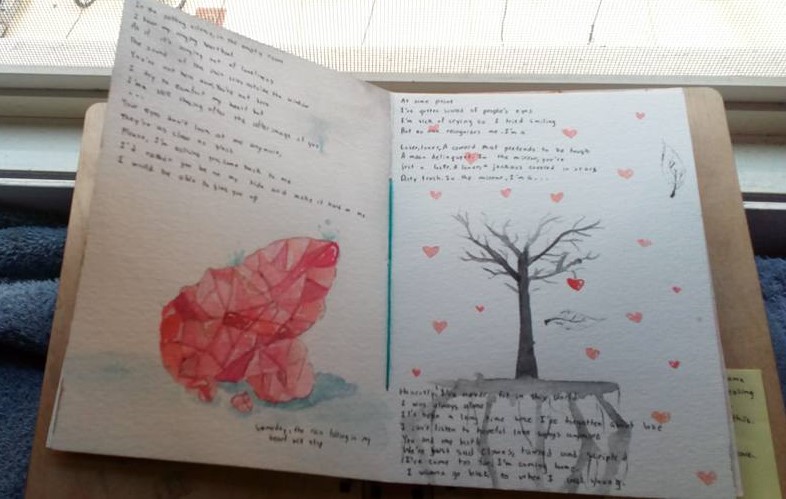 In the settling silence, in the empty room
I hear my ringing heartbeat
As if it's ringing out of loneliness
The sound of the rain cries outside the window
You're not here now, you're not here
I try to comfort my heart but
I'm still chasing after the afterimage of you
...
Your eyes don't look at me anymore,
They're as clear as glass
Please, I'm asking you, come back to me
I'd rather you be on my side and make it hard on me
I would be able to give you up
Someday, the rain falling in my
heart will stop
At some point
I've gotten scared of people's eyes
I'm sick of crying so I tried smiling
But no one recognizes me. I'm a
Loser, loner, A coward that pretends to be tough
A mean delinquent, In the mirror, you're
Just a loser, A loner, a jackass covered in scars
Dirty trash, In the mirror, I'm a...
Honestly, I've never fit in this world
I was always alone
It's been a long time since I've forgotten about love
I can't listen to hopeful love songs anymore
You and me both
We're just sad clowns, tamed and scripted
I've come too far, I'm coming home
I wanna go back to when I was young.
ome
this.